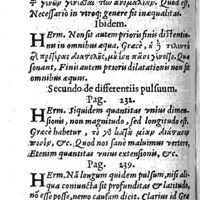 Necessario in vtroq; genere sit inæqualitas.
Ibidem.
HErm. Non sit autem prioris finis distentio-
nis in omnibus æqua. Græcè,
sonant, Finis autem prioris dilatationis non sit
omnibus æquus.
Secundo de differentiis pulsuum.
Pag. 231.
HErm. Siquidem quantitas vnius dimen-
sionis, non magnitudo, sed longitudo est.
Græcè habetur,
&c. Quod nos sanè maluimus verters,
Etenim quantitas vnius extensionis, &c.
Pag. 239.
HErm. Nā longum quidem pulsum, nisi ali-
qua coniuncta sit profunditas & latitudo,
nō esse posse, nemo causam dicit. Clarior id Græ